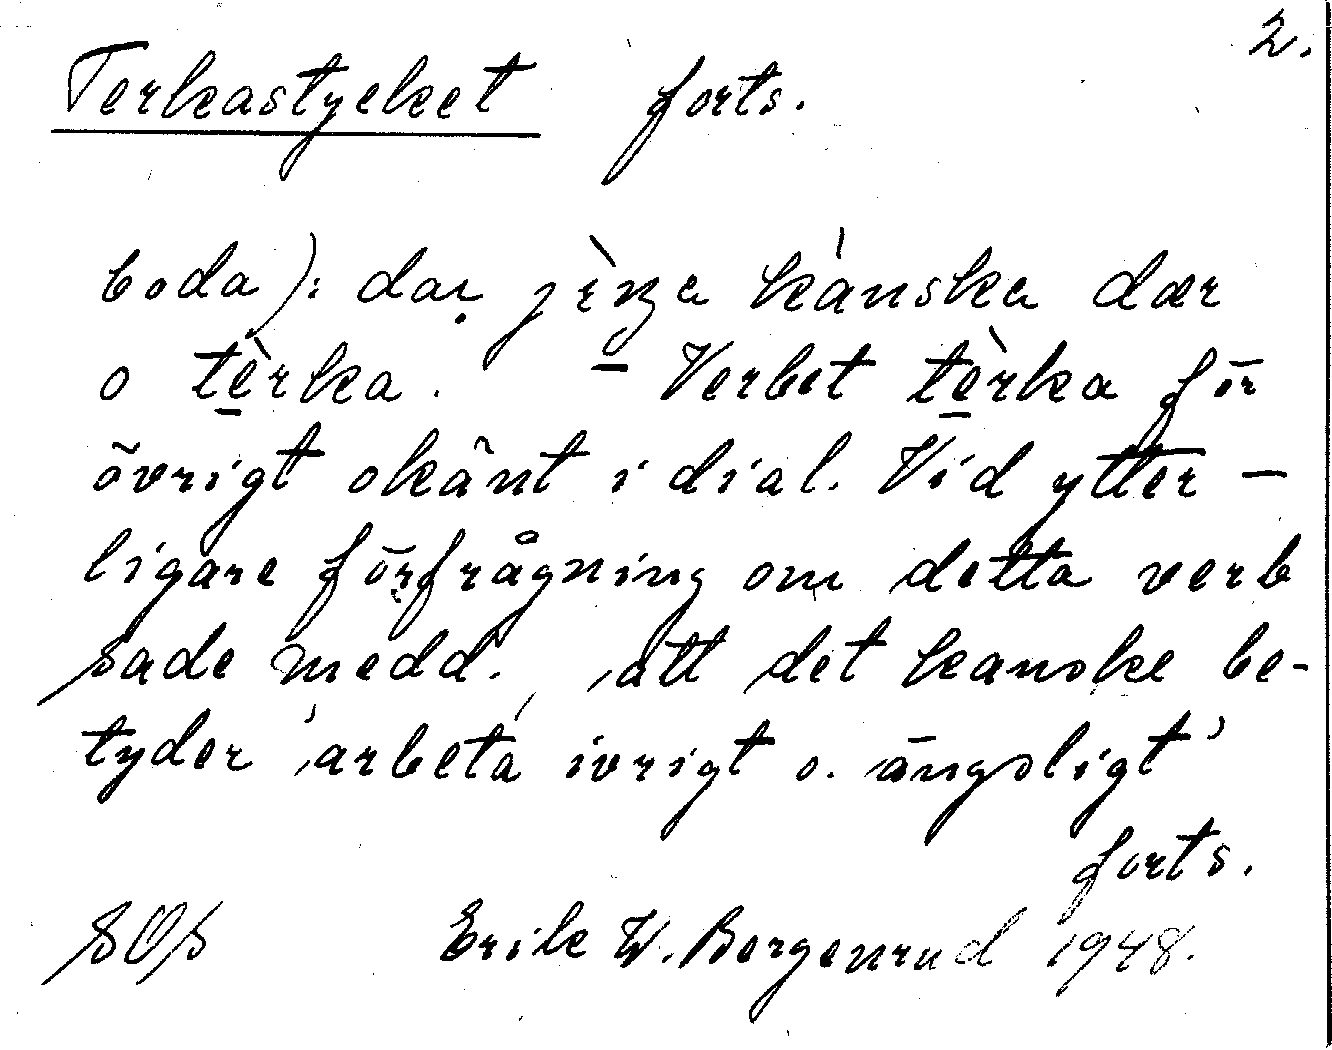 2.
Terkastycket forts.
boda): dar̩ jènga kànska dær
o tè̱rka. – Verbet tè̱rka för
övrigt okänt i dial. Vid ytter-
ligare förfrågning om detta verb
sade medd., att det kanske be-
tyder 'arbeta ivrigt o. ängsligt'
forts.
SOS Erik W. Bergenrud 1948.